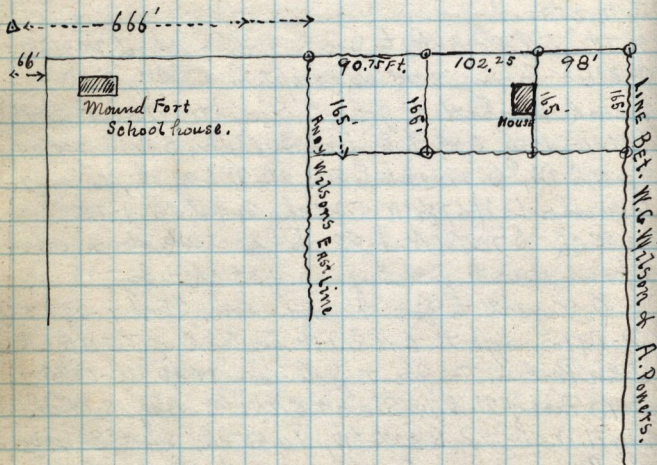 666'
66'
90.75 Ft.
102.25
98'
Mound Fort
School house.
165'
165'
House
165'
165'
Andy Wilsons East Line
Line Bet. W.G. Wilson & A. Powers.